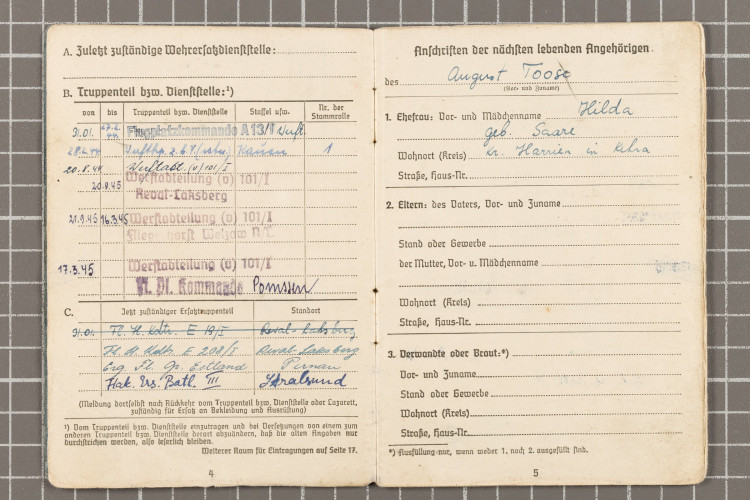 A. Zuletzt zuständige Wehrersatzdienststelle:
B. Truppenteil bzw. Dienststelle:¹)
von bis Truppenteil bzw. Dienststelle Staffel usw. Nr. der Stammrolle
31.01. Flugplatzkommando A 13/I
Kauen 1
20.8.44 (v) 101/I
20.9.45 Werftabteilung (v) 101/I
Reval-Laksberg
21.9.45 16.3.45 Werftabteilung (v) 101/I
Fliegerhorst Welzow N.L.
17.3.45 Werftabteilung (v) 101/I
Fl. Pl. Kommando Pomssen
C. Jetzt zuständiger Ersatztruppenteil Standort
31.01. Fl. H. Kdtr. E 18/I Reval-Laksberg
Fl. H. Kdtr. E 208/I Reval-Laksberg
Erg. Fl. Gr. Estland Pernau
Flak. Ers. Batl. III Stralsund
(Meldung dortselbst nach Rückkehr vom Truppenteil bzw. Dienststelle oder Lazarett,
zuständig für Ersatz an Bekleidung und Ausrüstung)
¹) Vom Truppenteil bzw. Dienststelle einzutragen und bei Versetzungen von einem zum
anderen Truppenteil bzw. Dienststelle derart abzuändern, daß die alten Angaben nur
durchstrichen werden, also leserlich bleiben.
Weiterer Raum für Eintragungen auf Seite 17.
4
Anschriften der nächsten lebenden Angehörigen
des August Toose
(Vor- und Zuname)
1. Ehefrau: Vor- und Mädchenname Hilda
geb. Saare
Wohnort (Kreis) Kr. Harrien in Kehra
Straße, Haus-Nr.
2. Eltern: des Vaters, Vor- und Zuname
Stand oder Gewerbe
der Mutter, Vor- u. Mädchenname
Wohnort (Kreis)
Straße, Haus-Nr.
3. Verwandte oder Braut:*)
Vor- und Zuname
Stand oder Gewerbe
Wohnort (Kreis)
Straße, Haus-Nr.
*) Ausfüllung nur, wenn weder 1. noch 2. ausgefüllt sind.
5